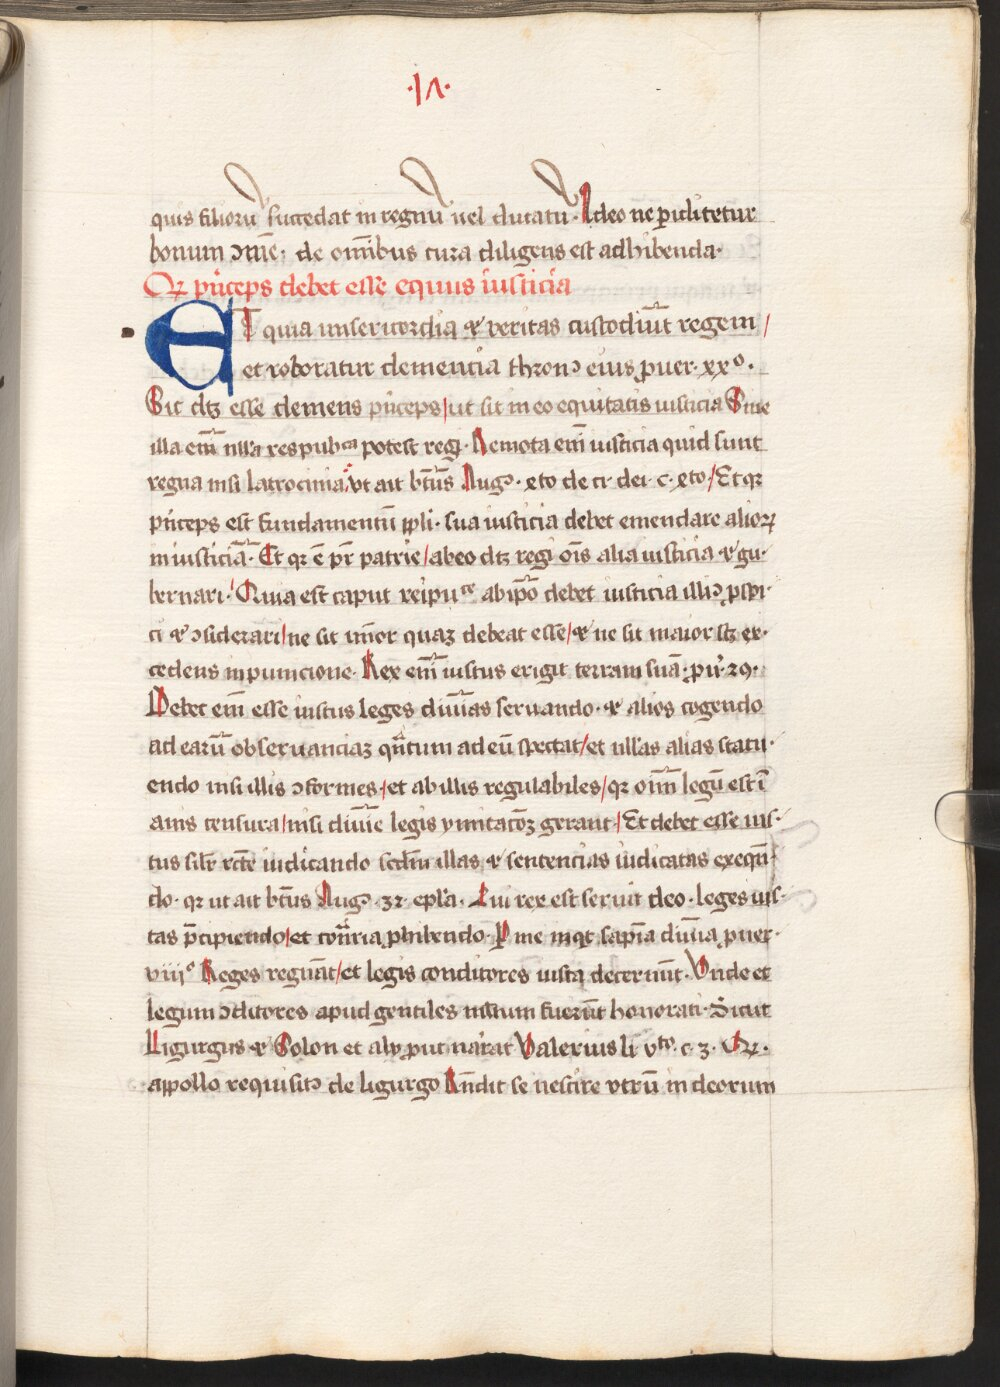 ·IΛ·
quis filiorū succedat in regnū uel ducatū· Ideo ne ꝑiclitetur
bonum ɔmē· de om̄ibus cura diligens est adhibenda·
Qꝛ pⁱnceps debet esse equus iusticia
ET quia misericordia ⁊ veritas custodiūt regem /
et roboratur clemencia thronꝰ eius ꝓuer· xxº·
Sit dꝫ esse clemens pⁱnceps / ut sit in eo equitatis iusticia Sine
illa em̄ nll'a respub͡ca potest regi· Remota em̄ iusticia quid sunt
regna nisi latrocinia, vt ait bt̄us Augꝰ· xto de ci· dei· c· xto / Et qꝛ
pⁱnceps est fundamentū ppl̄i· sua iusticia debet emendare alioꝝ
iniusticiā· Et qꝛ ē pr̄ patrie / ab eo dꝫ regi oīs alia iusticia ⁊ gu·
bernari·' Quia est caput reipuᶜᵉ ab ip̄o debet iusticia illiꝰ ꝑspi·
ci ⁊ ɔsiderari / ne sit mīor quaꝫ debeat esse / ⁊ ne sit maior sꝫ ex·
cedens in punicione· Rex em̄ iustus erigit terram suā· ꝓu'· 29·
Debet em̄ esse iustus leges diuīas seruando· ⁊ alios cogendo
ad earū obseruanciaꝫ qn̄tum ad eū spectat / et ull'as alias statu·
endo nisi illis ɔformes / et ab illis regulabiles / qꝛ om̄ legū est ī
anis censura / nisi diuīe legis ymitac̄oꝫ gerant / Et debet esse ius·
tus sil'r rc̄te iudicando scd̄m illas ⁊ sentencias iudicatas exequē
do· qꝛ ut ait bt̄us Augꝰ· 32· epl'a· Qui rex est seruit deo· leges ius·
tas p̄cipiendo / et cont̄ria ꝓhibendo· Per me inqt sapīa diuīa ꝓuer·
viiiº Reges regnāt / et legis conditores iusta decernūt· Vnde et
legum ɔditores apud gentiles nimium fuerūt honorati· Sicut
Ligurgus ⁊ Solon et alij ꝓut narrat Valerius li vᵗᵒ· c· 3· Qꝛ·
appollo requisitꝰ de ligurgo Rn̄dit se nescire vtrū in deorum